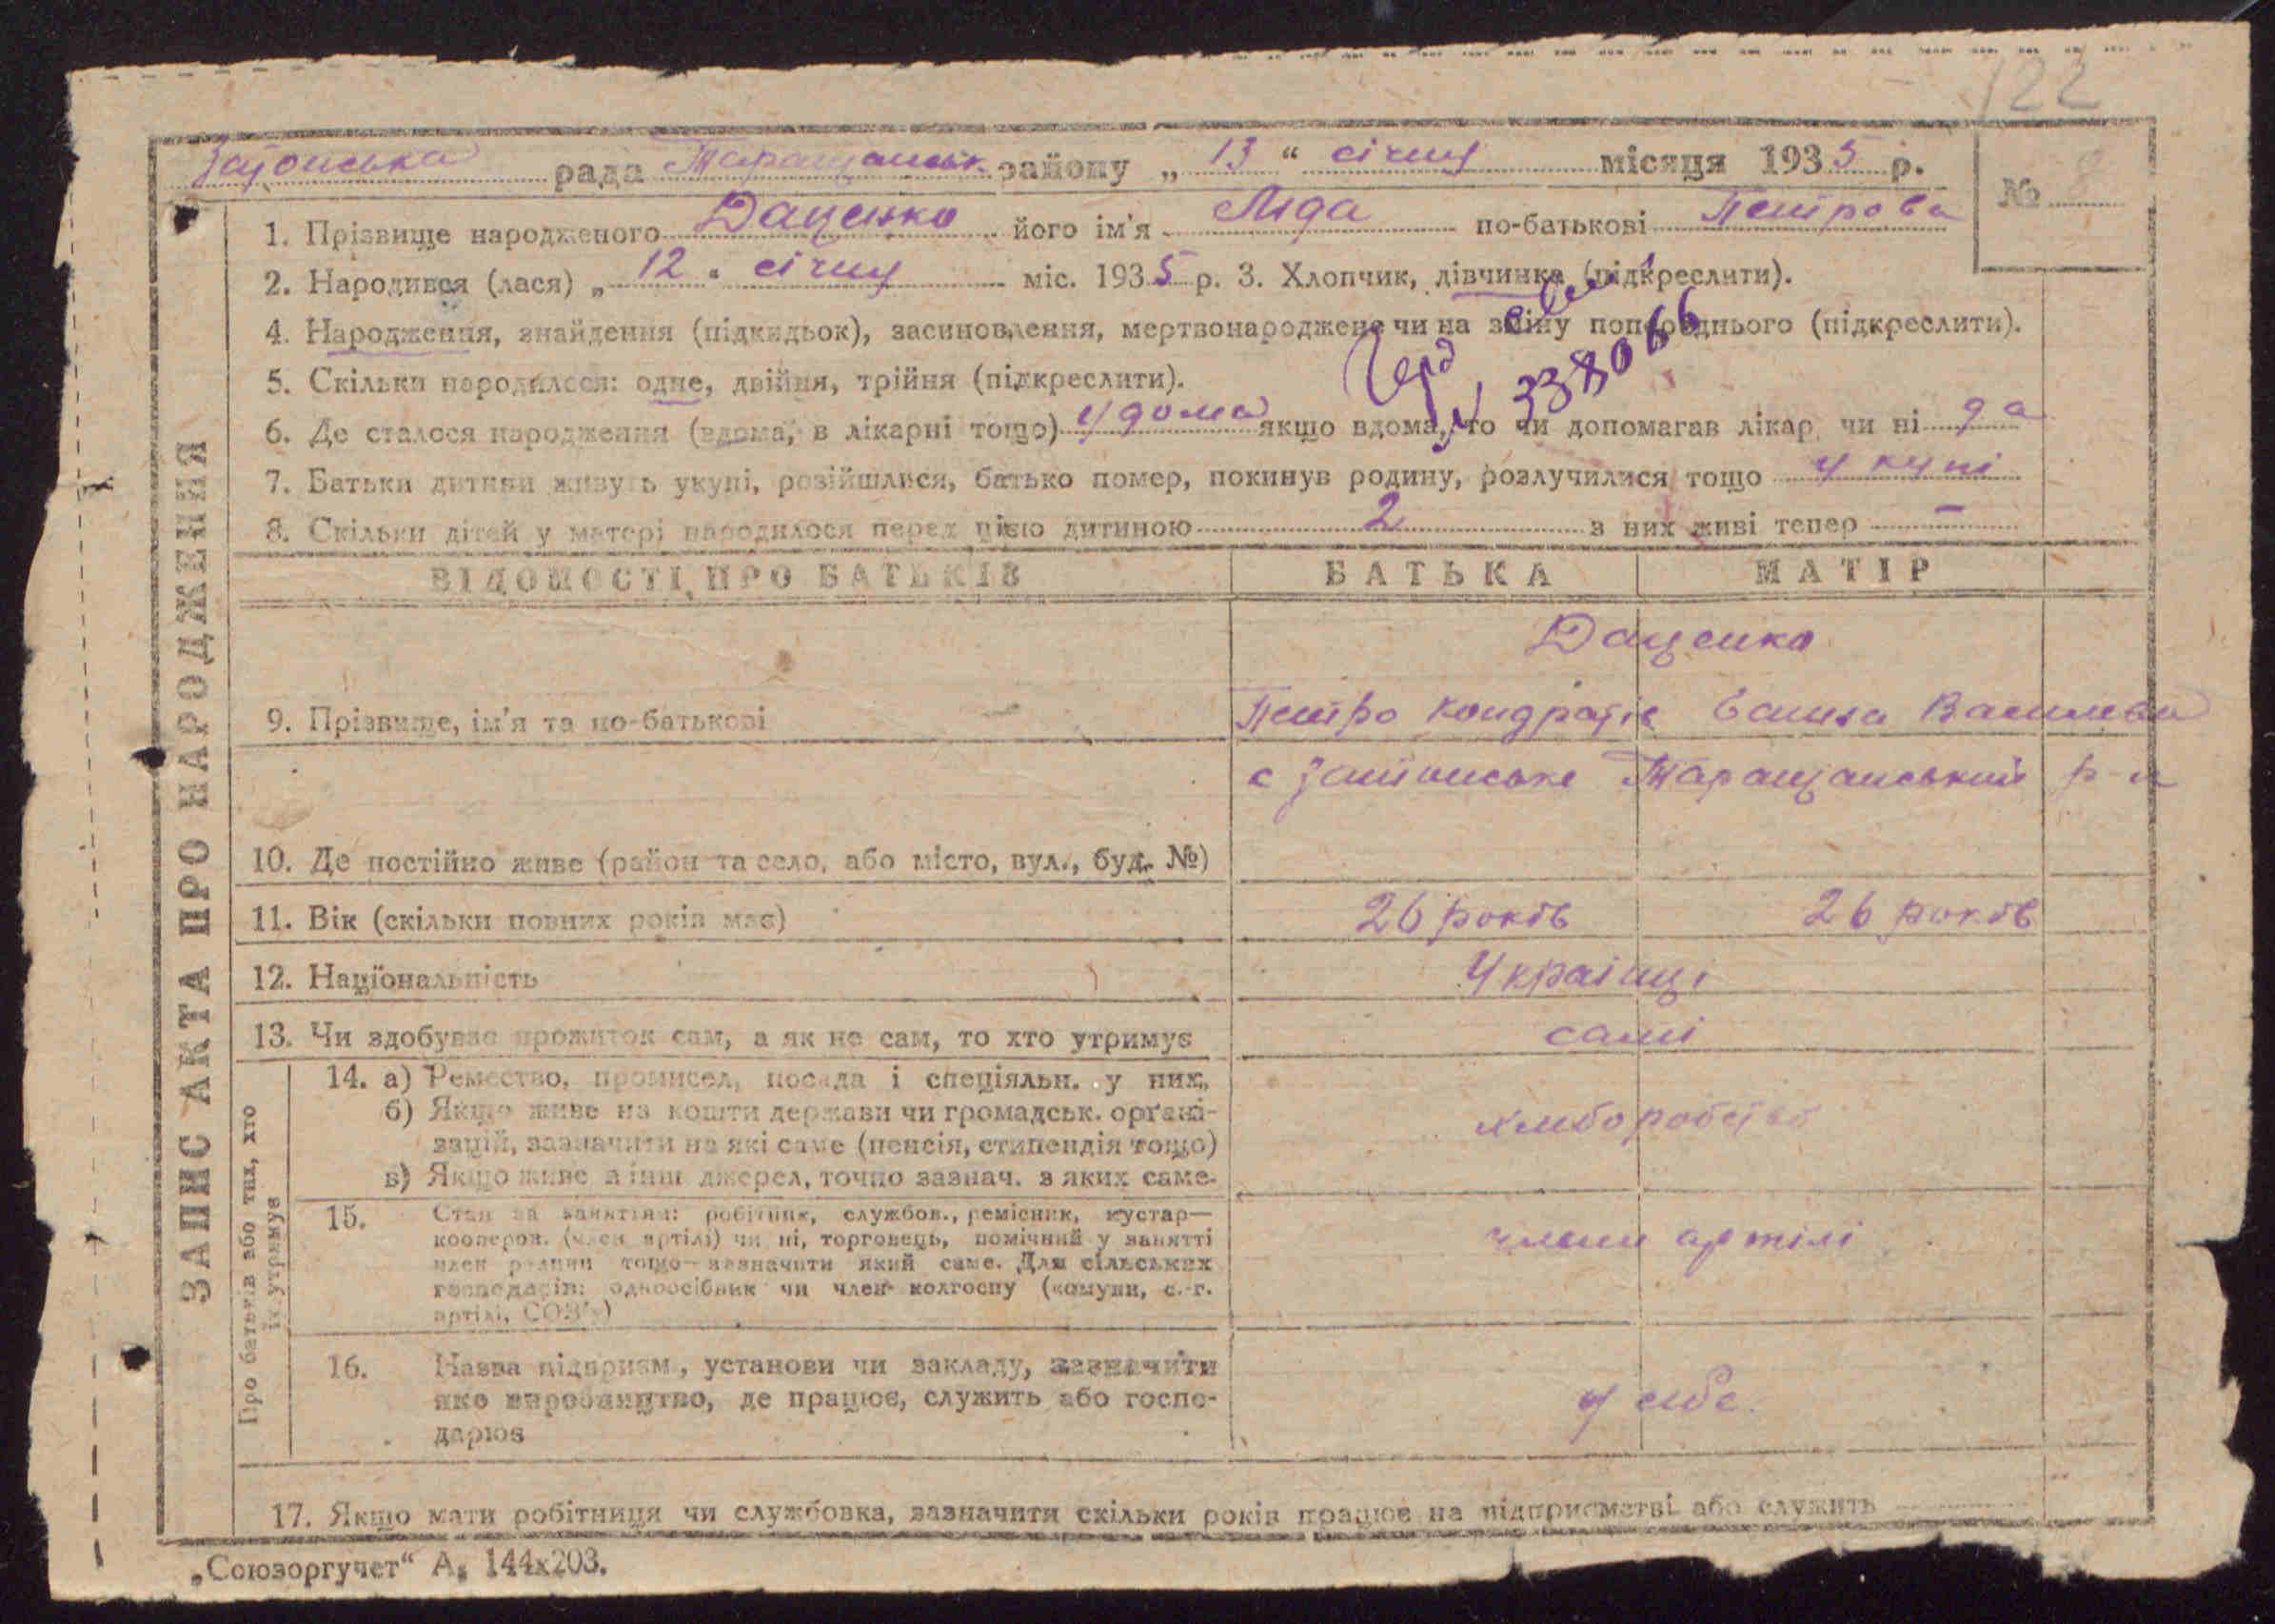 122
рада Таращанськ. району „ 13 “ січня місяця 1935 р.
№ 8
1. Прізвище народженого Даценко його ім'я Ліда по-батькові Петрова
2. Народився (лася) „ 12 " січня міс. 1935 р. 3. Хлопчик, дівчинка (підкреслити).
4. Народження, знайдення (підкидьок), засиновлення, мертвонароджене чи на зміну попереднього (підкреслити).
338066
5. Скільки народилося: одне, двійня, трійня (підкреслити).
6. Де сталося народження (вдома, в лікарні тощо) удома якщо вдома, то чи допомагав лікар чи ні да
7. Батьки дитини живуть укупі, розійшлися, батько помер, покинув родину, розлучилися тощо укупі
8. Скільки дітей у матері народилося перед цією дитиною 2 з них живі тепер –
ВІДОМОСТІ ПРО БАТЬКІВ БАТЬКА МАТІР
Даценко
9. Прізвище, ім'я та по-батькові Петро Кондратів Василева
с Таращанський р-н
10. Де постійно живе (район та село, або місто, вул., буд. №)
11. Вік (скільки повних років має) 26 років 26 років
12. Національність Українці
13. Чи здобуває прожиток сам, а як не сам, то хто утримує самі
14. а) Ремество, промисел, посада і спеціяльн. у них,
б) Якщо живе на кошти держави чи громадськ. орґані-
зацій, зазначити на які саме (пенсія, стипендія тощо) хліборобство
в) Якщо живе з інш джерел, точно зазнач. з яких саме.
15. Стан за заняттям: робітник, службов., ремісник, кустар—
кооперов. (член артілі) чи ні, торговець, помічний у занятті члени артілі
член родини тощо—зазначити який саме. Для сільських
господарів: одноосібник чи член колгоспу (комуни, с.-г.
артілі, СОЗ'у)
16. Назва підприєм, установи чи закладу, зазначити
яке виробництво, де працює, служить або госпо- у себе.
дарює
17. Якщо мати робітниця чи службовка, зазначити скільки років працює на підприємстві або служить
ЗАПИС АКТА ПРО НАРОДЖЕННЯ
Про батьків або тих, хто
їх утримує
„Союзоргучет“ А₅ 144х203.